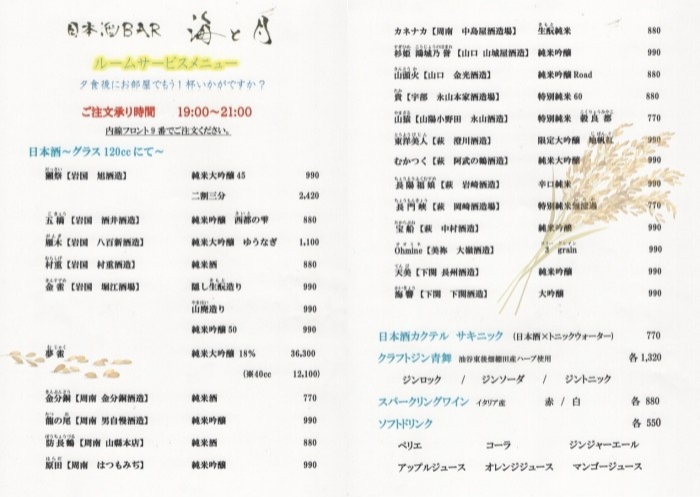 日本酒BAR 海と月
ルームサービスメニュー
夕食後にお部屋でもう1杯いかがですか？
ご注文承り時間 19:00～21:00
内線フロント9番でご注文ください。
日本酒～グラス120ccにて～
獺祭【岩国 旭酒造】 純米大吟醸 45 990
二割三分 2,420
五橋【岩国 酒井酒造】 純米吟醸 西都の雫 880
雁木【岩国 八百新酒造】 純米大吟醸 ゆうなぎ 1,100
村重【岩国 村重酒造】 純米酒 880
金雀【岩国 堀江酒場】 隠し生酛造り 990
山廃造り 990
純米吟醸 50 990
夢雀 純米大吟醸 18% 36,300
(※40cc 12,100)
金分銅【周南 金分銅酒造】 純米酒 770
龍の尾【周南 男自慢酒造】 純米吟醸 990
防長鶴【周南 山縣本店】 純米酒 880
原田【周南 はつもみぢ】 純米吟醸 990
カネナカ【周南 中島屋酒造場】 生酛純米 880
杉姫 陽城乃誉【山口 山城屋酒造】 純米吟醸 990
山頭火【山口 金光酒造】 純米吟醸 Road 880
貴【宇部 永山本家酒造場】 特別純米 60 880
山猿【山陽小野田 永山酒造】 特別純米 穀良都 770
東洋美人【萩 澄川酒造】 限定大吟醸 地帆紅 990
むかつく【萩 阿武の鶴酒造】 純米大吟醸 990
長陽福娘【萩 岩崎酒造】 辛口純米 990
長門峡【萩 岡崎酒造場】 特別純米無濾過 770
宝船【萩 中村酒造】 純米吟醸 990
Ohmine【美祢 大嶺酒造】 3 grain 990
天美【下関 長州酒造】 純米吟醸 990
海響【下関 下関酒造】 大吟醸 990
日本酒カクテル サキニック (日本酒×トニックウォーター) 770
クラフトジン青舞 油谷東後畑棚田産ハーブ使用 各1,320
ジンロック / ジンソーダ / ジントニック
スパークリングワイン イタリア産 赤 / 白 各 880
ソフトドリンク 各 550
ペリエ コーラ ジンジャーエール
アップルジュース オレンジジュース マンゴージュース